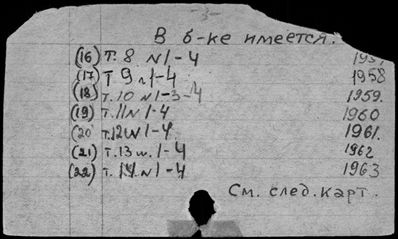 - 3 -
В б-ке имеется.
(16) т. 8 № 1-4 195
(17) т 9 № 1-4 1958
(18) т. 10 № 1-3-4 1959.
(19) т. 11 № 1-4 1960
(20) т. 12 № 1-4 1961.
(21) т. 13 н. 1-4 1962
(22) т. 14. № 1-4 1963
См. след. карт.